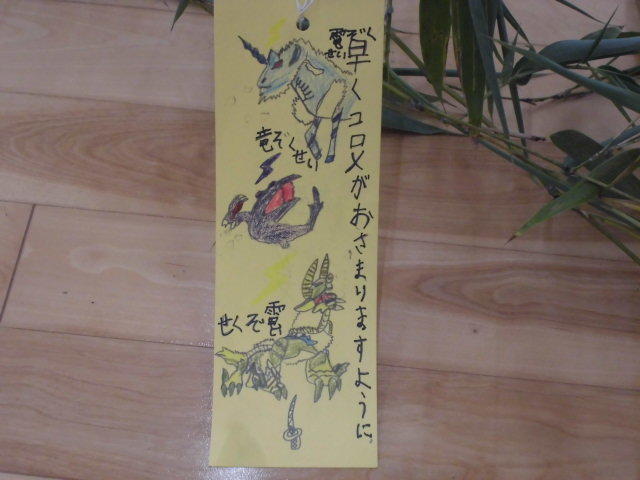 早くコロメがおさまりますように。
雷ぞく
せい
竜ぞくせい
雷ぞくせ